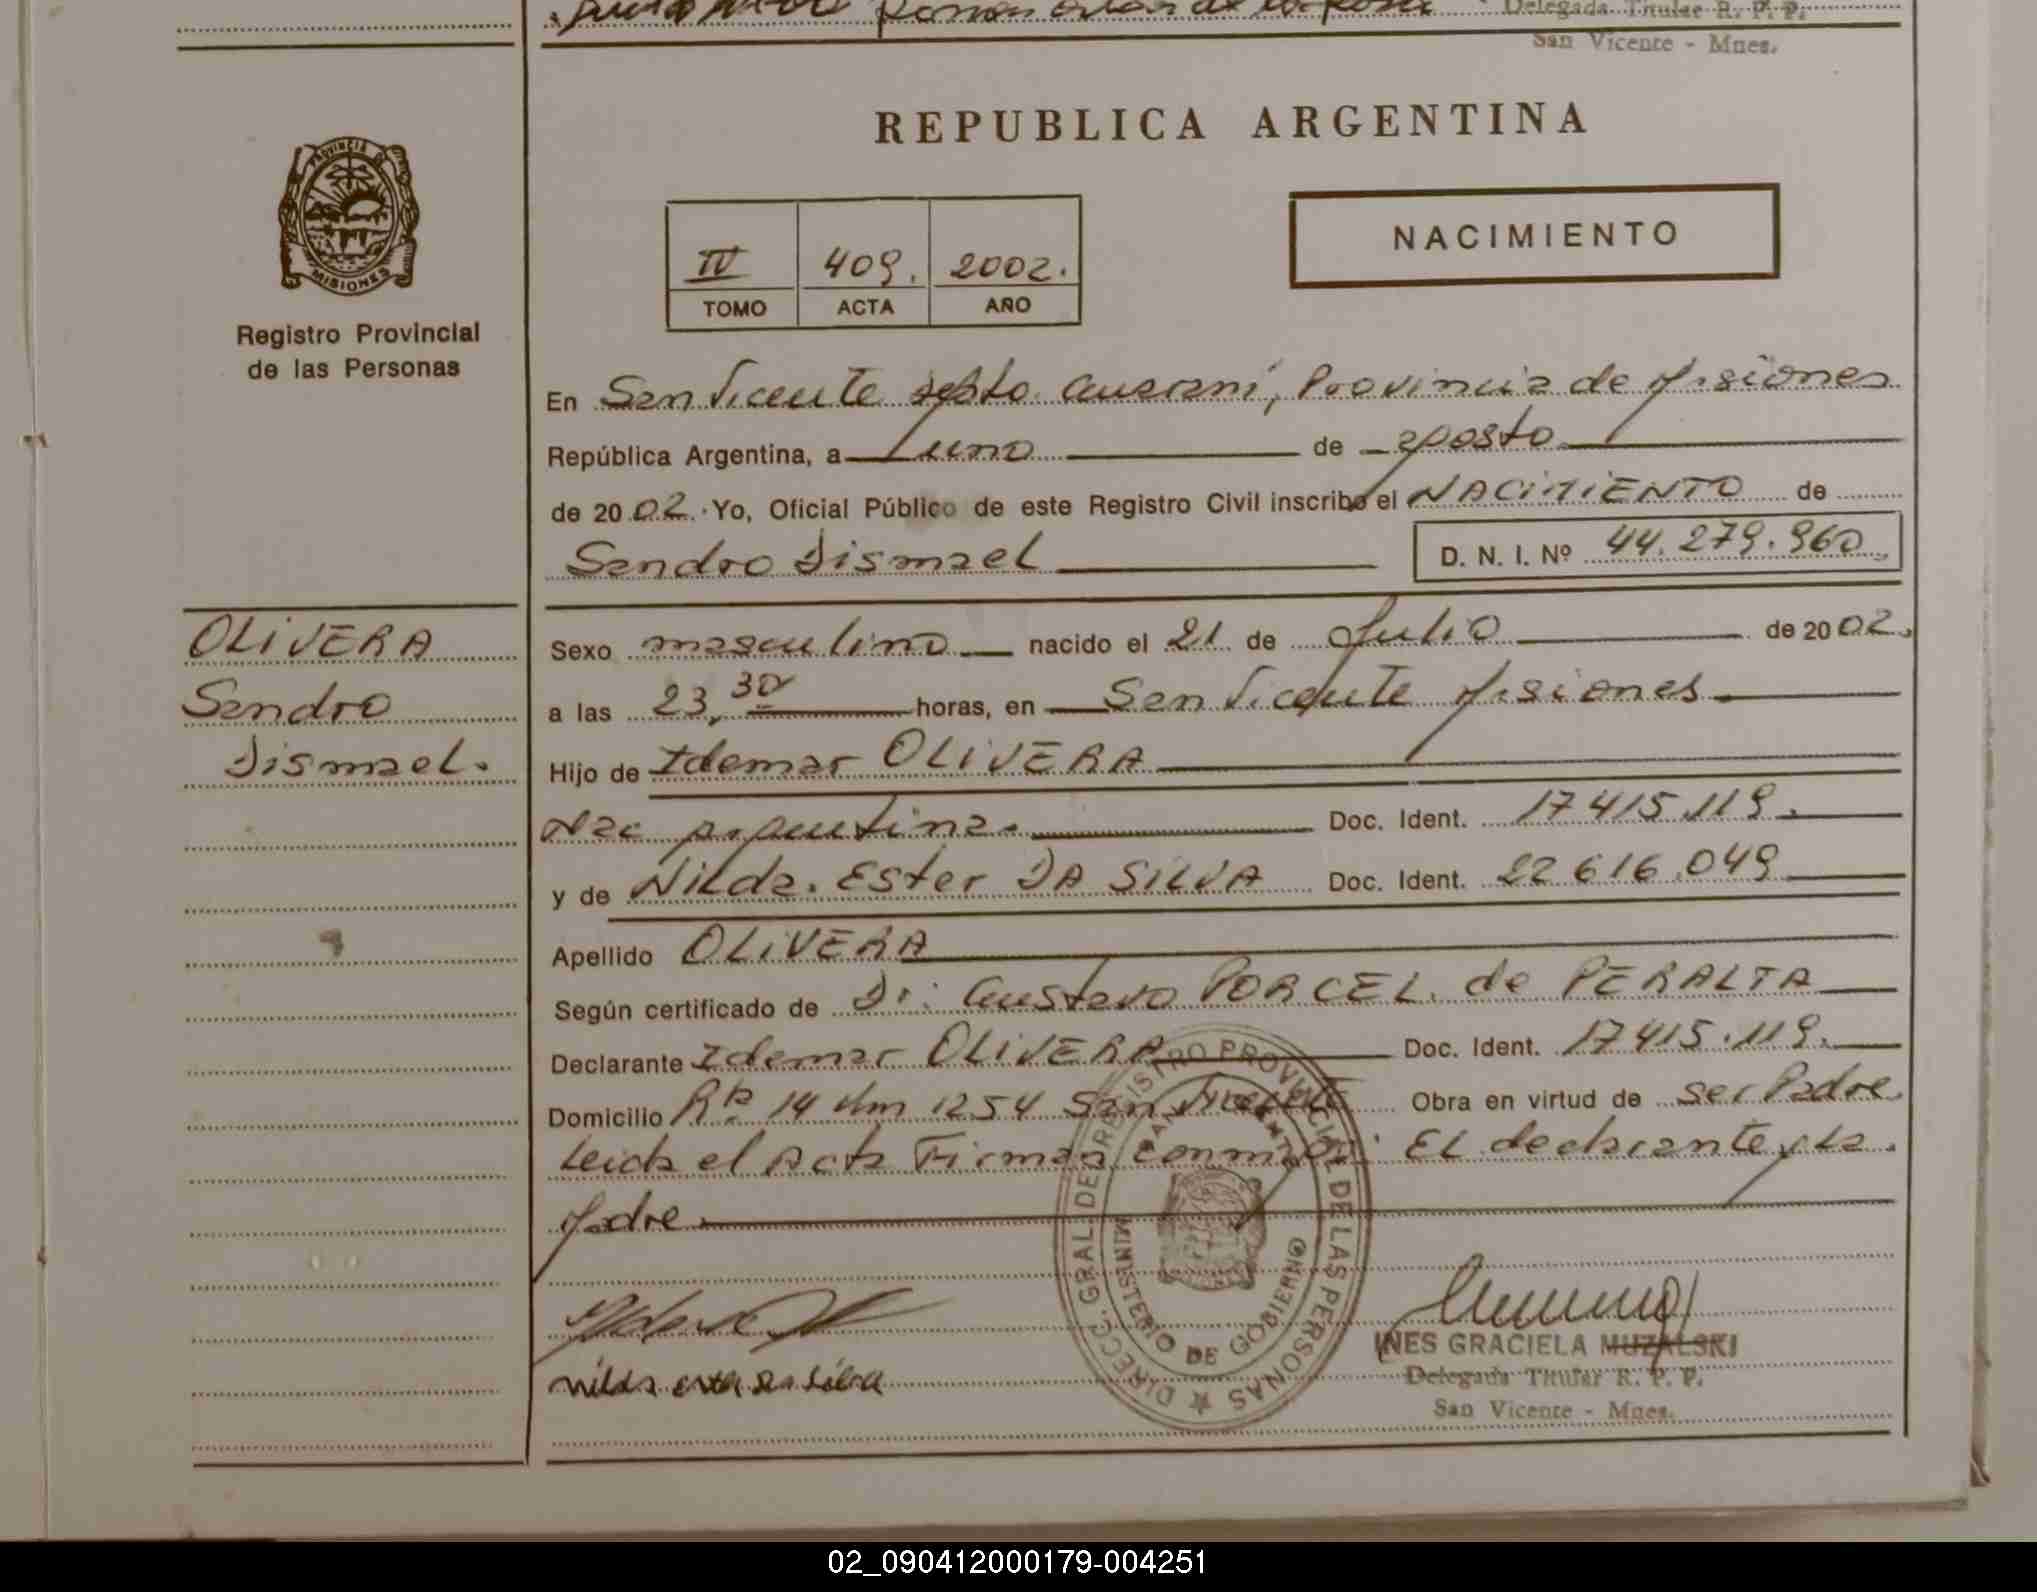 Delegada Titular R. P. P.
San Vicente - Mnes.
REPUBLICA ARGENTINA
PROVINCIA DE MISIONES
Registro Provincial
de las Personas
IV 409. 2002.
TOMO ACTA AÑO
NACIMIENTO
En San Vicente Dpto. Guaraní, Provincia de Misiones
República Argentina, a uno de agosto
de 2002. Yo, Oficial Público de este Registro Civil inscribo el NACIMIENTO de
Sandro Dismael D. N. I. Nº 44.279.960
OLIVERA
Sandro
Dismael.
Sexo masculino nacido el 21 de Julio de 2002.
a las 23,30 horas, en San Vicente Misiones.
Hijo de Idemar OLIVERA
Nac Argentina. Doc. Ident. 17415.119.
y de Nilda. Ester DA SILVA Doc. Ident. 22616.049
Apellido OLIVERA
Según certificado de Dr: Gustavo PORCEL. de PERALTA
Declarante Idemar OLIVERA Doc. Ident. 17415.119.
Domicilio Rta 14 Km 1254 San Vicente Obra en virtud de ser Padre.
Leida el Acta Firman conmigo: EL declarante y la.
Madre.
DIRECC. GRAL. DE REGISTRO PROVINCIAL DE LAS PERSONAS
SAN VICENTE
MINISTERIO DE GOBIERNO
nilda ester da silva
INES GRACIELA MUZALSKI
Delegada Titular R. P. P.
San Vicente - Mnes.
02_090412000179-004251